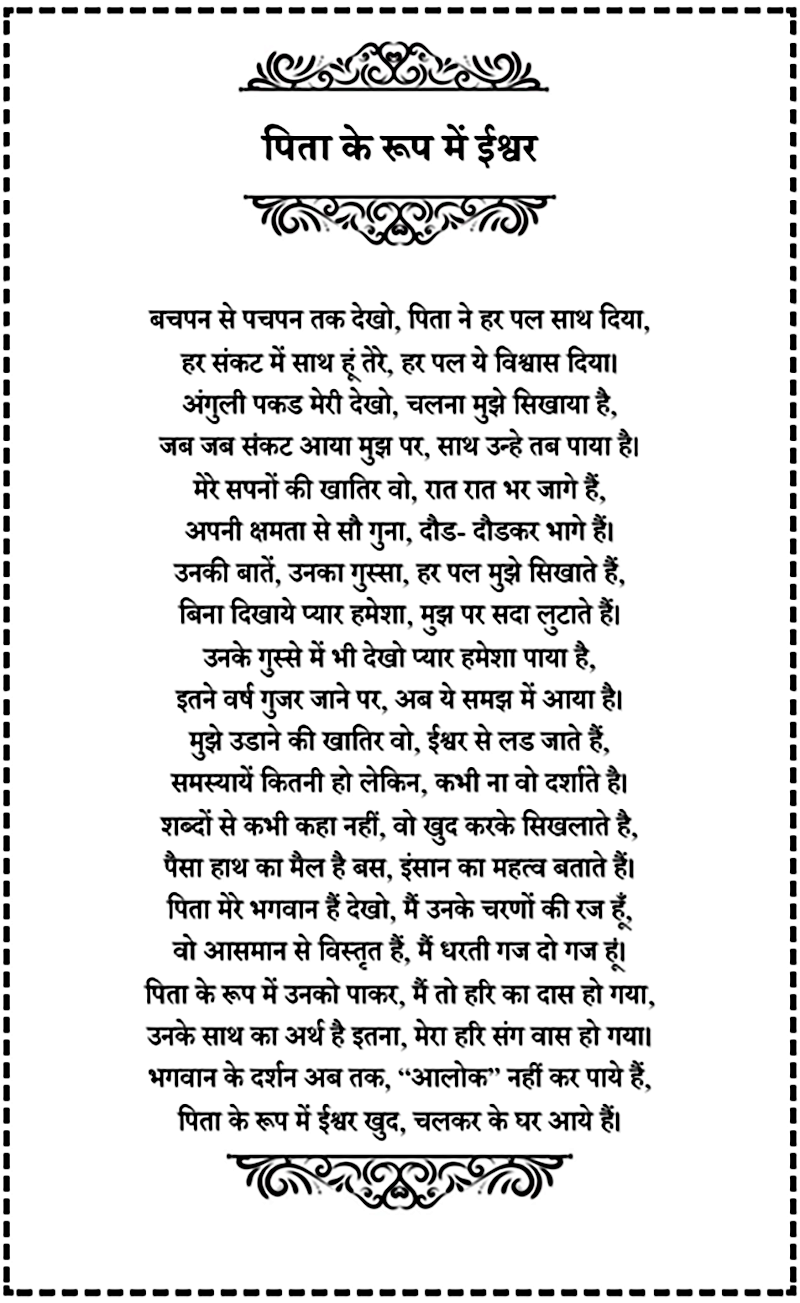 पिता के रूप में ईश्वर
बचपन से पचपन तक देखो, पिता ने हर पल साथ दिया,
हर संकट में साथ हूं तेरे, हर पल ये विश्वास दिया।
अंगुली पकड मेरी देखो, चलना मुझे सिखाया है,
जब जब संकट आया मुझ पर, साथ उन्हे तब पाया है।
मेरे सपनों की खातिर वो, रात रात भर जागे हैं,
अपनी क्षमता से सौ गुना, दौड- दौडकर भागे हैं।
उनकी बातें, उनका गुस्सा, हर पल मुझे सिखाते हैं,
बिना दिखाये प्यार हमेशा, मुझ पर सदा लुटाते हैं।
उनके गुस्से में भी देखो प्यार हमेशा पाया है,
इतने वर्ष गुजर जाने पर, अब ये समझ में आया है।
मुझे उडाने की खातिर वो, ईश्वर से लड जाते हैं,
समस्यायें कितनी हो लेकिन, कभी ना वो दर्शाते है।
शब्दों से कभी कहा नहीं, वो खुद करके सिखलाते है,
पैसा हाथ का मैल है बस, इंसान का महत्व बताते हैं।
पिता मेरे भगवान हैं देखो, मैं उनके चरणों की रज हूँ,
वो आसमान से विस्तृत हैं, मैं धरती गज दो गज हूं।
पिता के रूप में उनको पाकर, मैं तो हरि का दास हो गया,
उनके साथ का अर्थ है इतना, मेरा हरि संग वास हो गया।
भगवान के दर्शन अब तक, “आलोक” नहीं कर पाये हैं,
पिता के रूप में ईश्वर खुद, चलकर के घर आये हैं।